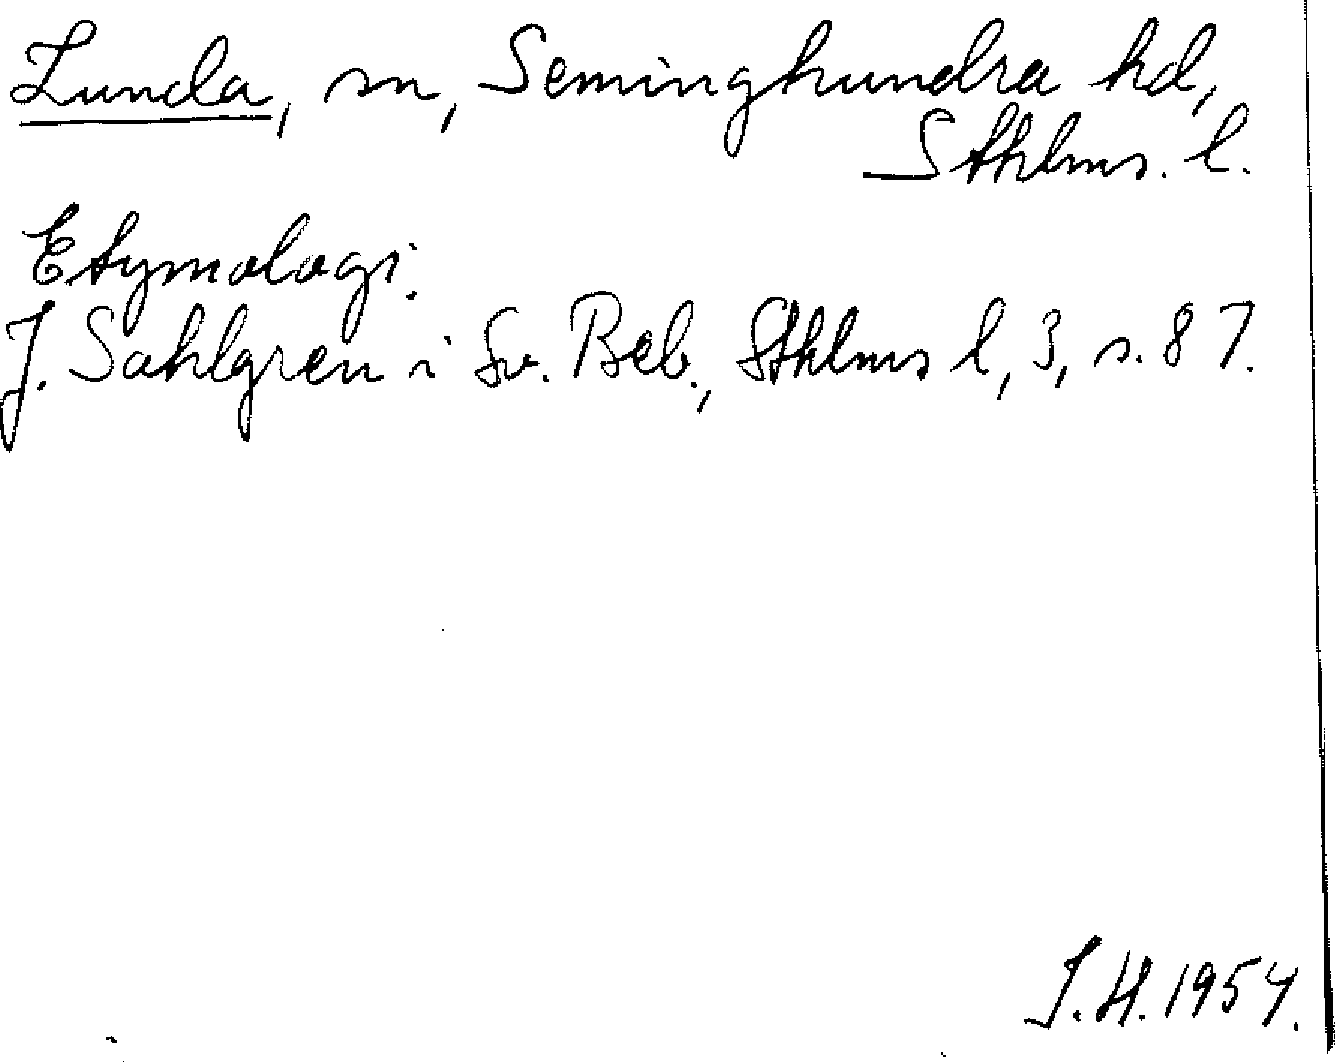 Lunda, sn, Seminghundra hd,
Sthlms. l.
Etymologi.
J. Sahlgren i Sv. Beb., Sthlms l, 3, s. 87.
J.H. 1954.